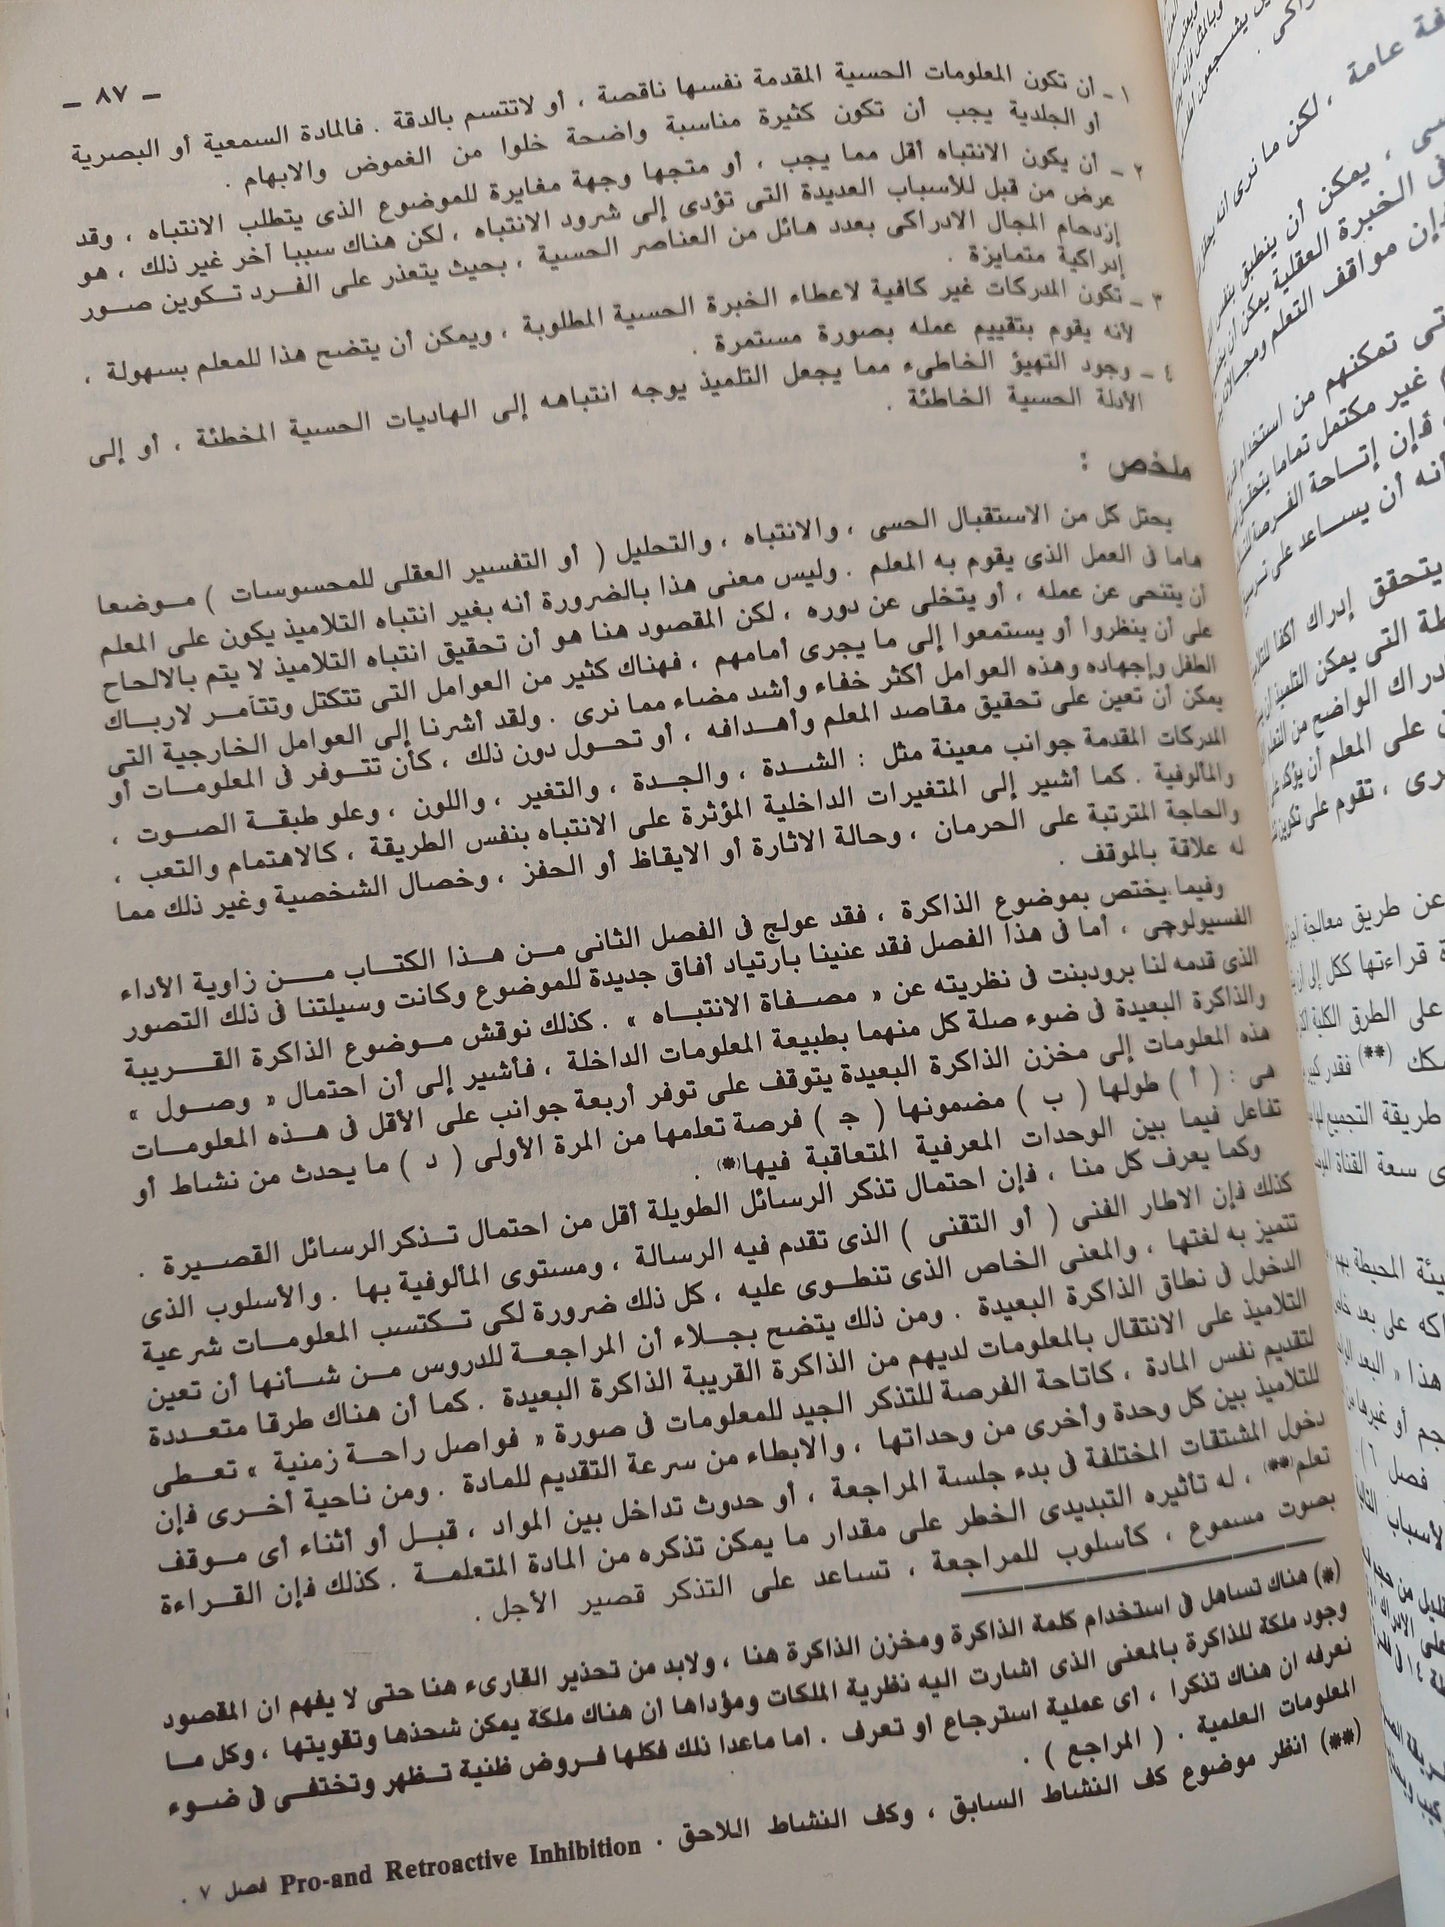 – ٨٧ –
١ – أن تكون المعلومات الحسية المقدمة نفسها ناقصة ، أو لاتتسم بالدقة . فالمادة السمعية أو البصرية
أو الجلدية يجب أن تكون كثيرة مناسبة واضحة خلوا من الغموض والابهام .
٢ – أن يكون الانتباه أقل مما يجب ، أو متجها وجهة مغايرة للموضوع الذى يتطلب الانتباه ، وقد
عرض من قبل للأسباب العديدة التى تؤدى إلى شرود الانتباه ، لكن هناك سببا أخر غير ذلك ، هو
إزدحام المجال الادراكى بعدد هائل من العناصر الحسية ، بحيث يتعذر على الفرد تكوين صور
إدراكية متمايزة .
٣ – تكون المدركات غير كافية لاعطاء الخبرة الحسية المطلوبة ، ويمكن أن يتضح هذا للمعلم بسهولة ،
لأنه يقوم بتقييم عمله بصورة مستمرة .
٤ – وجود التهيؤ الخاطىء مما يجعل التلميذ يوجه انتباهه إلى الهاديات الحسية المخطئة ، أو إلى
الأدلة الحسية الخاطئة .
ملخص :
يحتل كل من الاستقبال الحسى ، والانتباه ، والتحليل ( أو التفسير العقلى للمحسوسات ) موضعا
هاما فى العمل الذى يقوم به المعلم . وليس معنى هذا بالضرورة أنه بغير انتباه التلاميذ يكون على المعلم
أن يتنحى عن عمله ، أو يتخلى عن دوره ، لكن المقصود هنا هو أن تحقيق انتباه التلاميذ لا يتم بالالحاح
على أن ينظروا أو يستمعوا إلى ما يجرى أمامهم ، فهناك كثير من العوامل التى تتكتل وتتأمر لارباك
الطفل وإجهاده وهذه العوامل أكثر خفاء وأشد مضاء مما نرى . ولقد أشرنا إلى العوامل الخارجية التى
يمكن أن تعين على تحقيق مقاصد المعلم وأهدافه ، أو تحول دون ذلك ، كأن تتوفر فى المعلومات أو
المدركات المقدمة جوانب معينة مثل : الشدة ، والجدة ، والتغير ، واللون ، وعلو طبقة الصوت ،
والمألوفية . كما أشير إلى المتغيرات الداخلية المؤثرة على الانتباه بنفس الطريقة ، كالاهتمام والتعب ،
والحاجة المترتبة على الحرمان ، وحالة الاثارة أو الايقاظ أو الحفز ، وخصال الشخصية وغير ذلك مما
له علاقة بالموقف .
وفيما يختص بموضوع الذاكرة ، فقد عولج فى الفصل الثانى من هذا الكتاب من زاوية الأداء
الفسيولوجى ، أما فى هذا الفصل فقد عنينا بارتياد أفاق جديدة للموضوع وكانت وسيلتنا فى ذلك التصور
الذى قدمه لنا برودبنت فى نظريته عن « مصفاة الانتباه » . كذلك نوقش موضوع الذاكرة القريبة
والذاكرة البعيدة فى ضوء صلة كل منهما بطبيعة المعلومات الداخلة ، فأشير إلى أن احتمال « وصول »
هذه المعلومات إلى مخزن الذاكرة البعيدة يتوقف على توفر أربعة جوانب على الأقل فى هذه المعلومات
هى : ( أ ) طولها ( ب ) مضمونها ( جـ ) فرصة تعلمها من المرة الأولى ( د ) ما يحدث من نشاط أو
تفاعل فيما بين الوحدات المعرفية المتعاقبة فيها(*) .
وكما يعرف كل منا ، فإن احتمال تذكر الرسائل الطويلة أقل من احتمال تذكر الرسائل القصيرة .
كذلك فإن الاطار الفنى ( أو التقنى ) الذى تقدم فيه الرسالة ، ومستوى المألوفية بها . والأسلوب الذى
تتميز به لغتها ، والمعنى الخاص الذى تنطوى عليه ، كل ذلك ضرورة لكى تكتسب المعلومات شرعية
الدخول فى نطاق الذاكرة البعيدة . ومن ذلك يتضح بجلاء أن المراجعة للدروس من شأنها أن تعين
التلاميذ على الانتقال بالمعلومات لديهم من الذاكرة القريبة الذاكرة البعيدة . كما أن هناك طرقا متعددة
لتقديم نفس المادة ، كاتاحة الفرصة للتذكر الجيد للمعلومات فى صورة « فواصل راحة زمنية » تعطى
للتلاميذ بين كل وحدة وأخرى من وحداتها ، والابطاء من سرعة التقديم للمادة . ومن ناحية أخرى فإن
دخول المشتقات المختلفة فى بدء جلسة المراجعة ، أو حدوث تداخل بين المواد ، قبل أو أثناء أى موقف
تعلم(**) ، له تأثيره التبديدى الخطر على مقدار ما يمكن تذكره من المادة المتعلمة . كذلك فإن القراءة
بصوت مسموع ، كأسلوب للمراجعة ، تساعد على التذكر قصير الأجل .
(*) هناك تساهل فى استخدام كلمة الذاكرة ومخزن الذاكرة هنا ، ولابد من تحذير القارىء هنا حتى لا يفهم ان المقصود
وجود ملكة للذاكرة بالمعنى الذى اشارت اليه نظرية الملكات ومؤداها أن هناك ملكة يمكن شحذها وتقويتها ، وكل ما
نعرفه ان هناك تذكرا ، اى عملية استرجاع او تعرف . اما ماعدا ذلك فكلها فروض ظنية تظهر وتختفى فى ضوء
المعلومات العلمية . ( المراجع ) .
(**) انظر موضوع كف النشاط السابق ، وكف النشاط اللاحق . Pro-and Retroactive Inhibition فصل ٧ .